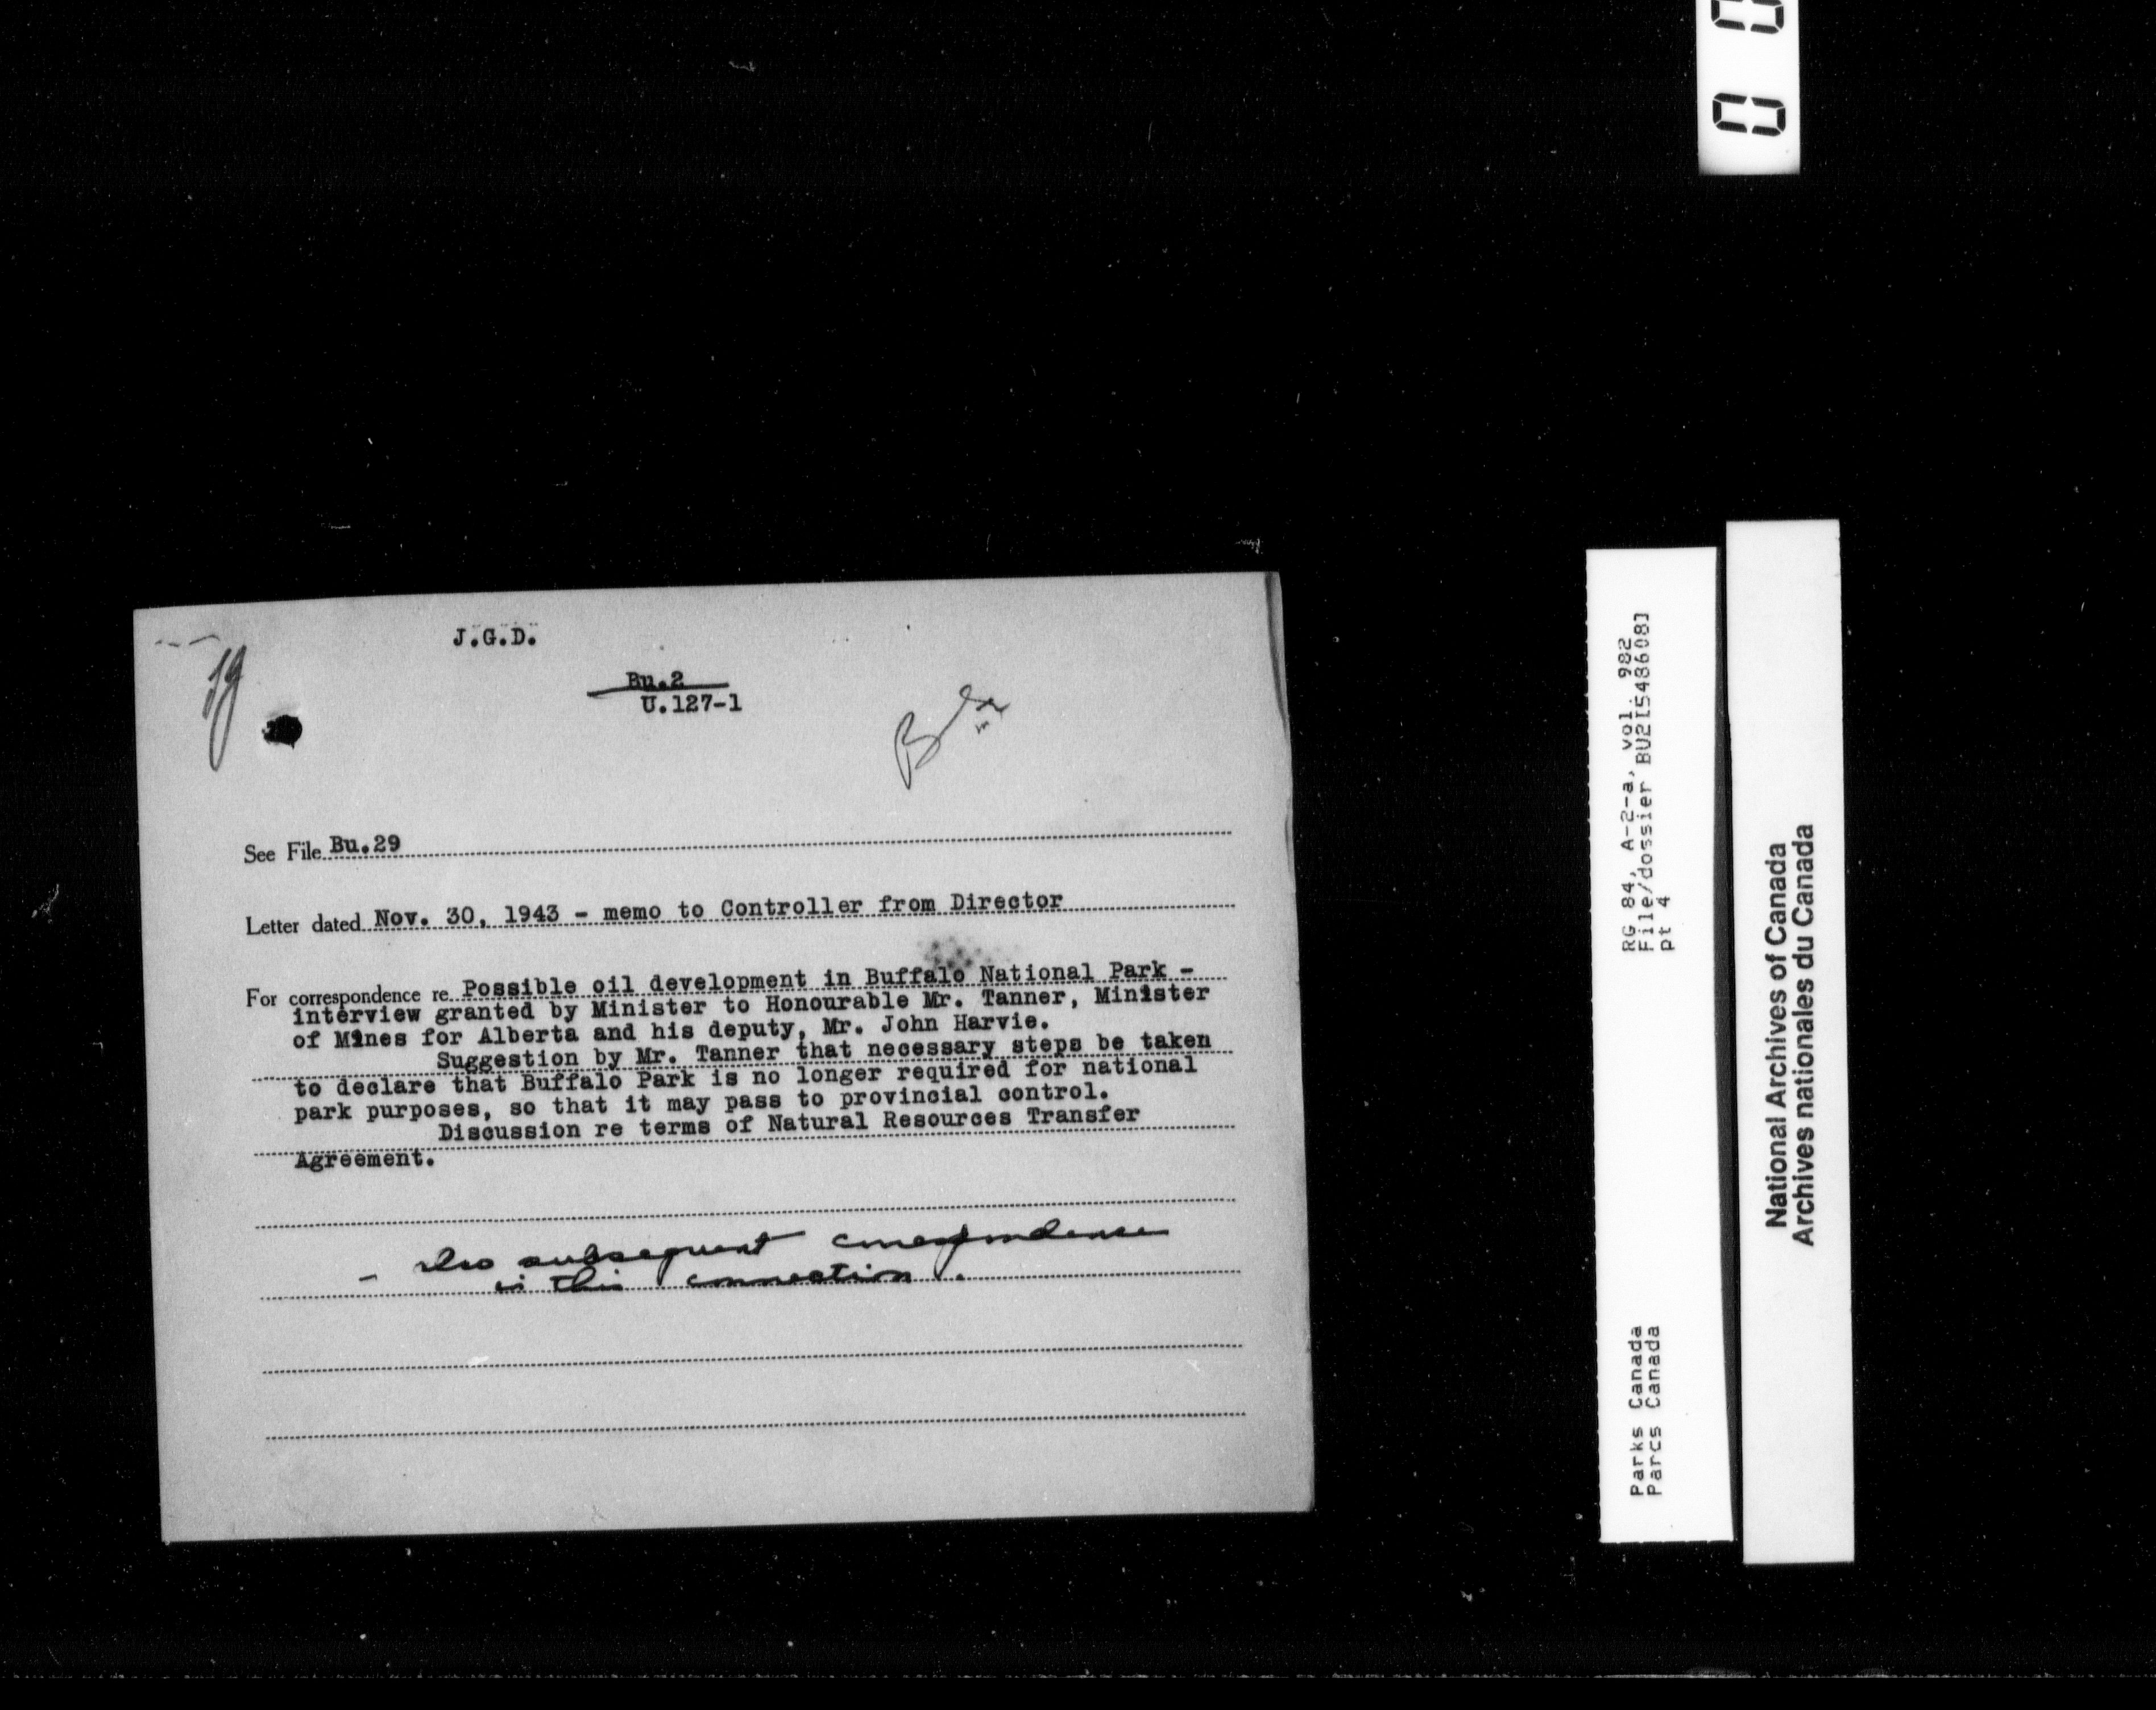 J.G.D.
Bu.2
U.127-1
See File Bu.29
Letter dated Nov. 30, 1943 - memo to Controller from Director
For correspondence re Possible oil development in Buffalo National Park -
interview granted by Minister to Honourable Mr. Tanner, Minister
of Mines for Alberta and his deputy, Mr. John Harvie.
Suggestion by Mr. Tanner that necessary steps be taken
to declare that Buffalo Park is no longer required for national
park purposes, so that it may pass to provincial control.
Discussion re terms of Natural Resources Transfer
Agreement.
- also subsequent correspondence
in this connection.
RG 84, A-2-a, vol. 982
File/dossier BU2[548608]
pt 4
Parks Canada
Parcs Canada
National Archives of Canada
Archives nationales du Canada